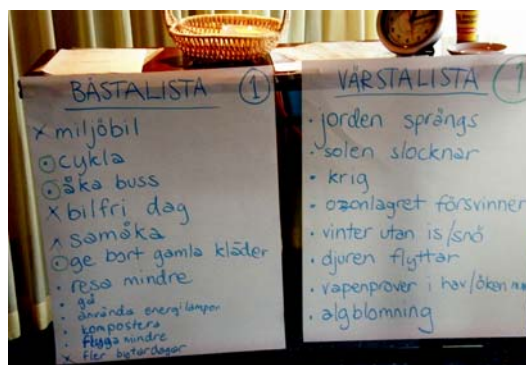 BÄSTALISTA 1
x miljöbil
cykla
åka buss
x bilfri dag
x samåka
ge bort gamla kläder
resa mindre
gå
använda energilampor
kompostera
flyga mindre
x fler bytardagar
VÄRSTALISTA 1
jorden sprängs
solen slocknar
krig
ozonlagret försvinner
vinter utan is/snö
djuren flyttar
vapenprover i hav/öken
algblomning